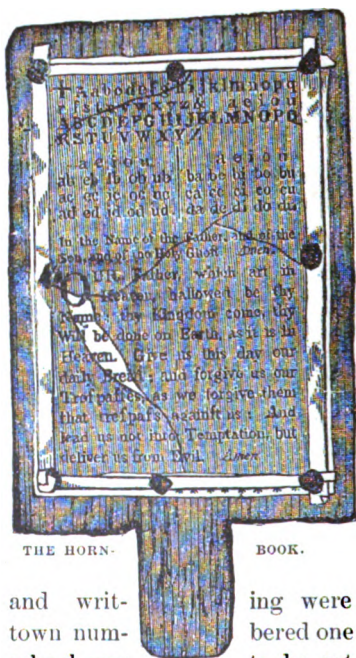 Aabcdefghijklmnopq
rſstuvwxyz& aeiou
ABCDEFGHIJKLMNOPQ
RSTUVWXYZ
a e i o u a e i o u
ab eb ib ob ub ba be bi bo bu
ac ec ic oc uc ca ce ci co cu
ad ed id od ud da de di do du
In the Name of the Father, and of the
Son, and of the Holy Ghoſt. Amen.
OUR Father, which art in
Heaven, hallowed be thy
Name; thy Kingdom come, thy
Will be done on Earth, as it is in
Heaven. Give us this day our
daily Bread; and forgive us our
Treſpaſſes, as we forgive them
that treſpaſs againſt us: And
lead us not into Temptation, but
deliver us from Evil. Amen
THE HORN- BOOK.
and writ- ing were
town num- bered one